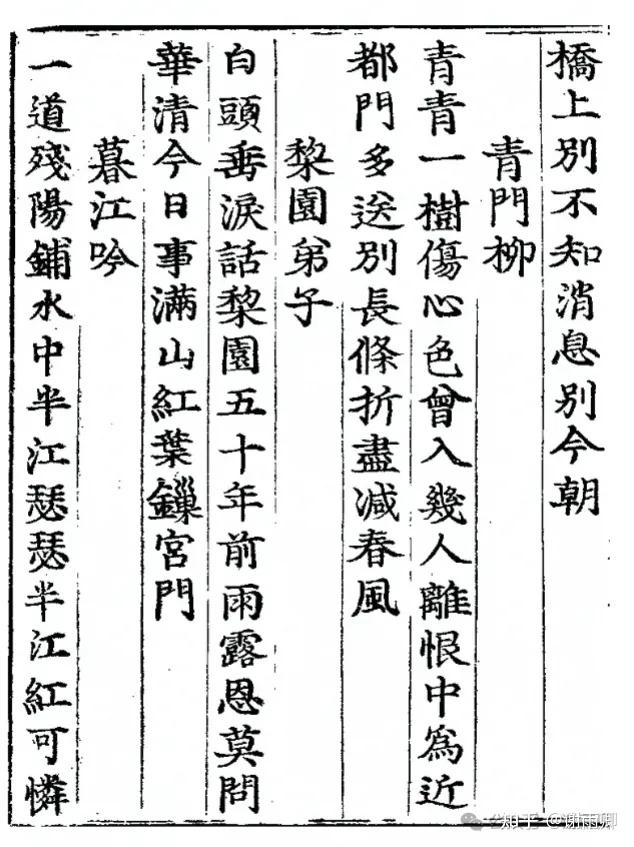 橋上別不知消息別今朝
青門柳
青青一樹傷心色曾入幾人離恨中爲近
都門多送別長條折盡減春風
棃園弟子
白頭垂淚話棃園五十年前雨露恩莫問
華清今日事滿山紅葉鏁宮門
暮江吟
一道殘陽鋪水中半江瑟瑟半江紅可憐
知乎 @谢雨卿